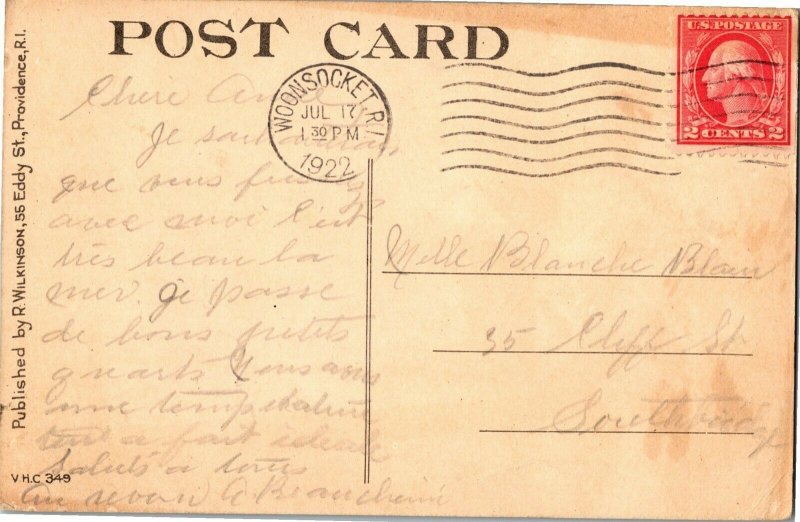 POST CARD
U.S. POSTAGE
2 CENTS 2
WOONSOCKET, R.I.
JUL 17
1 30 PM
1922
Published by R. WILKINSON, 55 Eddy St., Providence, R.I.
Chère
Je
que vous
avec moi c'est
très beau la
mer. je passe
de bons petits
quarts nous avons
une température
tout a fait idéale
Saluts a tous
Au revoir A Beauchemin
Melle Blanche Blain
35 Cliff St
V.H.C 349